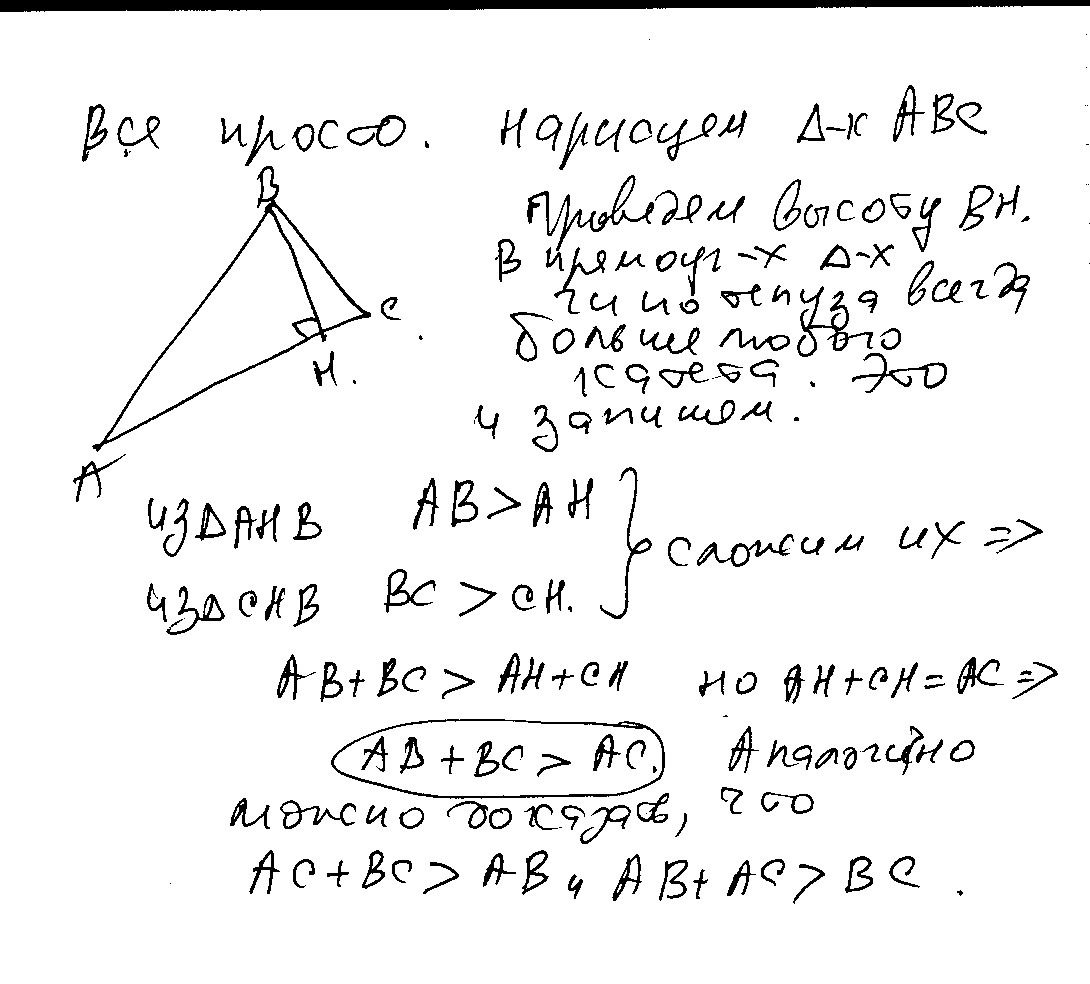 Все просто. Нарисуем Δ-к ABC
B
Проведем высоту BH.
В прямоуг-х Δ-х
гипотенуза всегда
C
больше любого
H.
катета. Это
и запишем.
A
из Δ AHB AB > AH
сложим их =>
из Δ CHB BC > CH.
AB + BC > AH + CH но AH + CH = AC =>
AB + BC > AC. Аналогично
можно доказать, что
AC + BC > AB и AB + AC > BC.